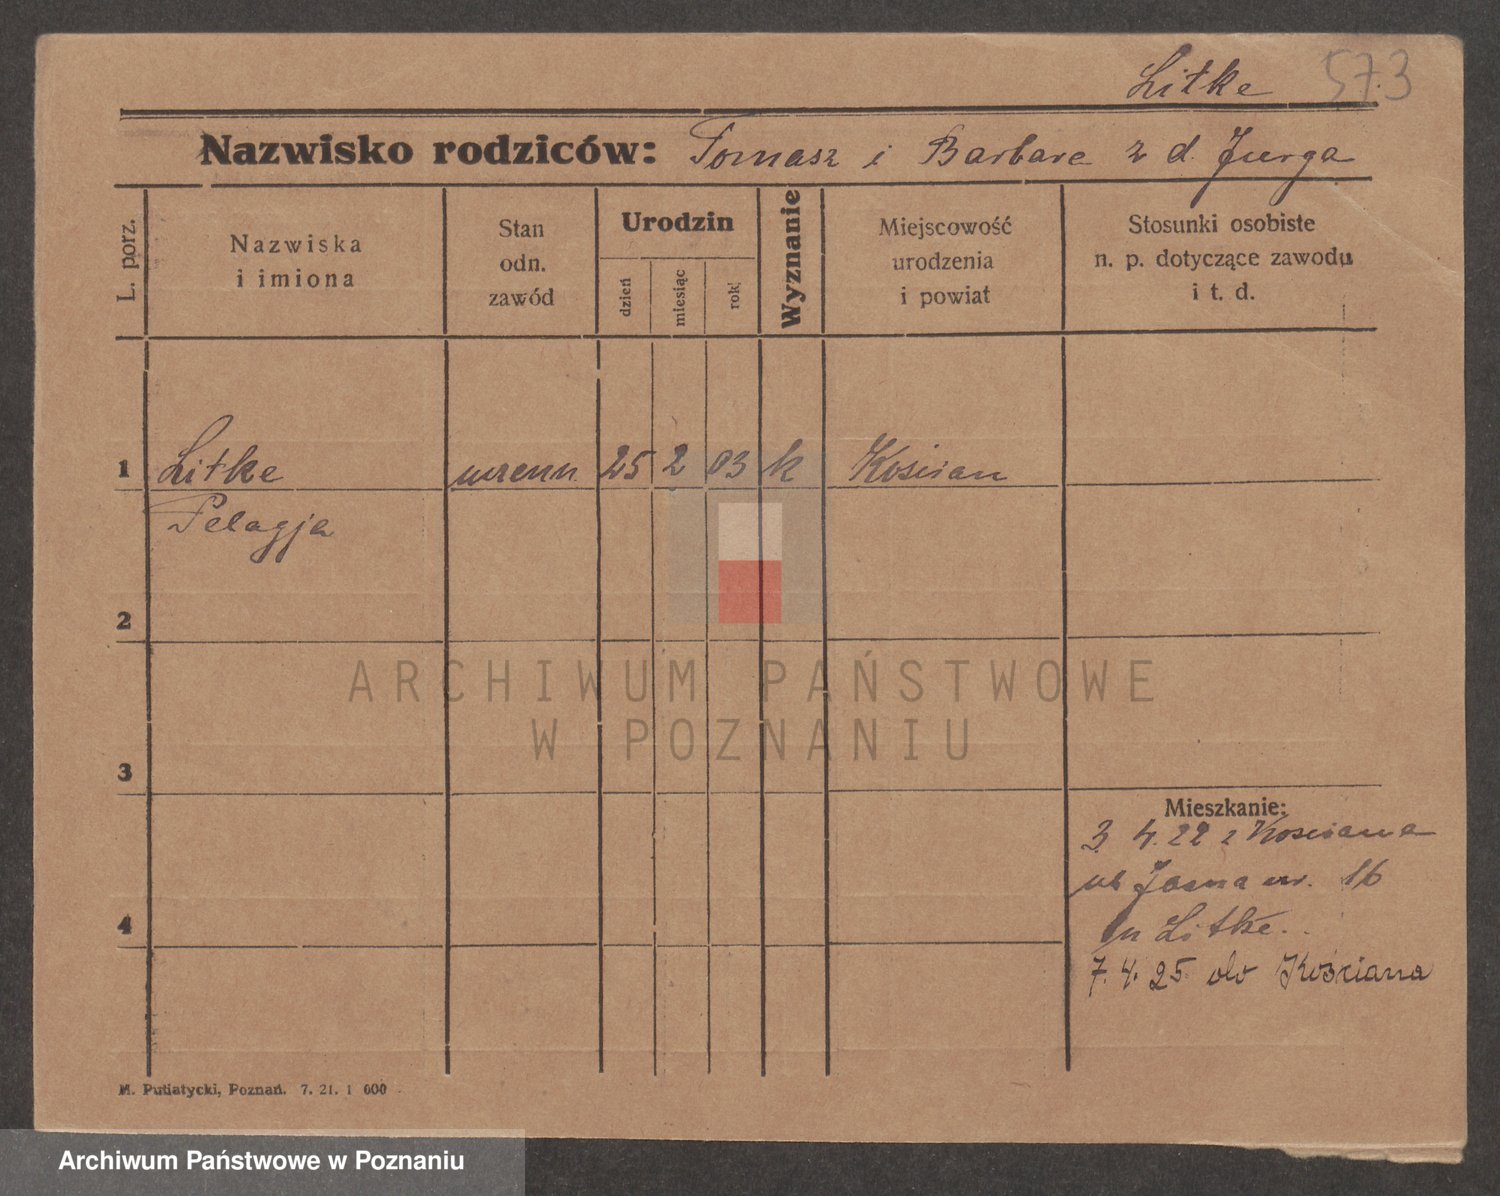 Litke 573
Nazwisko rodziców: Tomasz i Barbara z d. Jurga
L. porz.
Nazwiska
i imiona
Stan
odn.
zawód
Urodzin
dzień
miesiąc
rok
Wyznanie
Miejscowość
urodzenia
i powiat
Stosunki osobiste
n. p. dotyczące zawodu
i t. d.
1 Litke uczenn. 25 2 03 k Kościan
Pelagja
2
3
4
ARCHIWUM PAŃSTWOWE
W POZNANIU
Mieszkanie:
3 4. 22 z Kościana
ul Jasna nr. 16
Litke.
7. 4. 25. do Kościana
M. Putiatycki, Poznań. 7. 21. 1 000
Archiwum Państwowe w Poznaniu